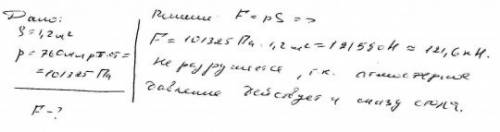 Дано:
S=1,2 м²
p=760 мм рт.ст=
=101325 Па
F-?
Решение: F=pS =>
F=101325 Па·1,2 м²=121590Н≈121,6 кН.
Не разрушится, т.к. атмосферное
давление действует и снизу стола.